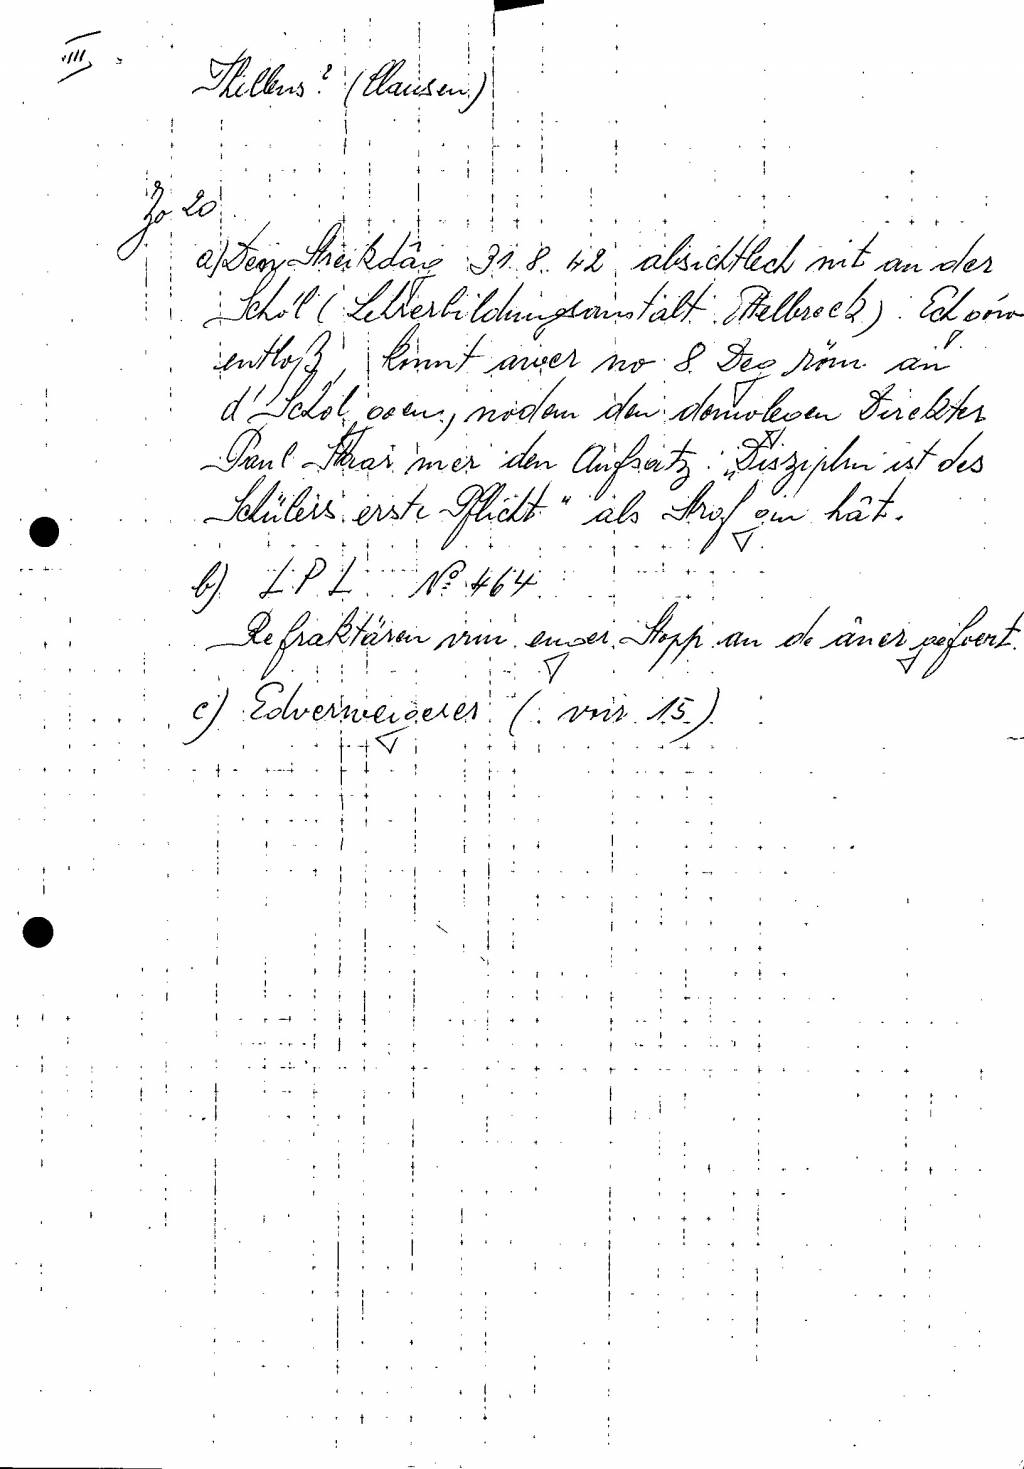 III
Thillens? (Clausen)
Zo 20
a) Den Streikdâg 31. 8. 42 absichtlech nit an der
Schôl (Lehrerbildungsanstalt Ettelbreck). Ech góuw
entloß, konnt awer no 8 Deg röm an
d'Schôl goen, nodem den domolegen Direkter
Paul Thrar mer den Aufsatz: „Disziplin ist des
Schülers erste Pflicht" als Strof gin hât.
b) L P L Nº 464
Refraktären vun enger Stopp an de âner gefoert.
c) Edverweigerer (: voir 15.)